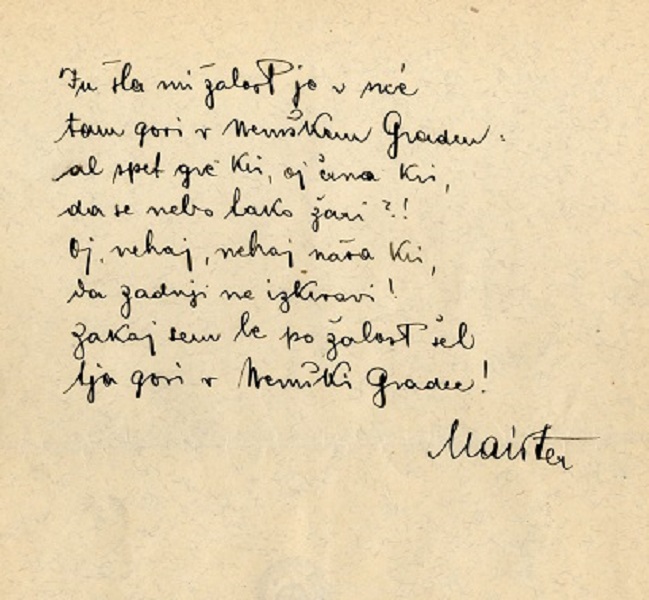 In šla mi žalost je v noč
tam gori v Nemškem Gradcu:
al spet gre kri, oj črna kri,
da se nebo tako žari?!
Oj, nehaj, nehaj naša kri,
da zadnji ne izkrvavi!
Zakaj sem le po žalost šel
tja gori v Nemški Gradec!
Maister